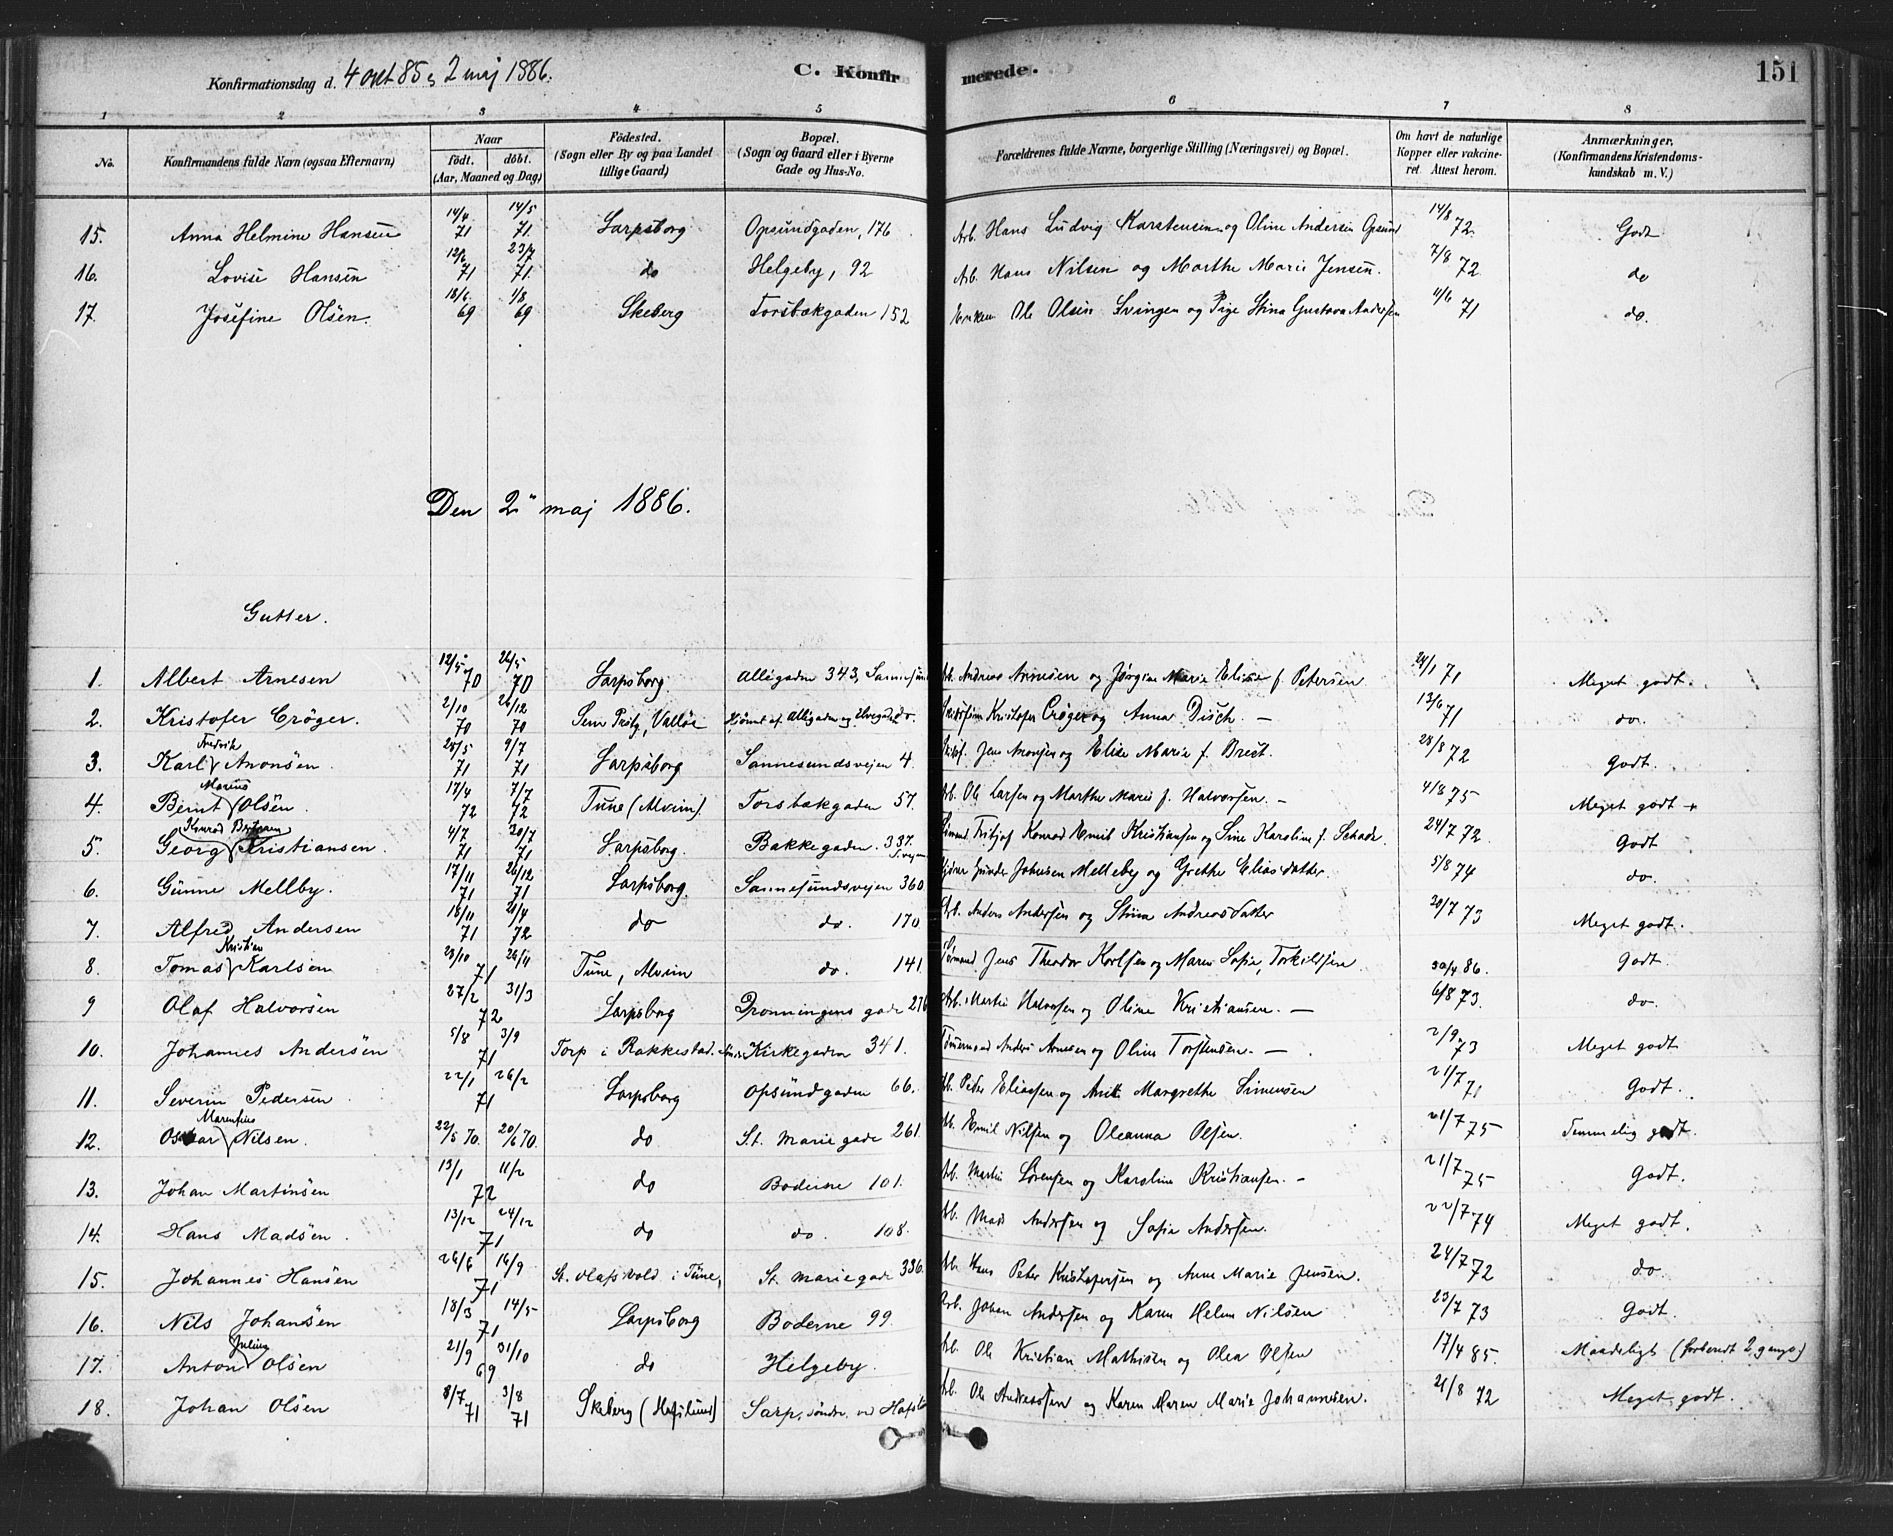 Konfirmationsdag d. 4 oct 85, 2 maj 1886. C. Konfirmerede. 151
1 2 3 4 5 6 7 8
No. Konfirmandens fulde Navn (ogsaa Efternavn) Naar födt. döbt. (Aar, Maaned og Dag) Födested. (Sogn eller By og paa Landet tillige Gaard) Bopæl. (Sogn og Gaard eller i Byerne Gade og Hus-No. Forældrenes fulde Navne, borgerlige Stilling (Næringsvei) og Bopæl. Om havt de naturlige Kopper eller vakcineret Attest herom. Anmærkninger. (Konfirmandens Kristendomskundskab m. V.)
15. Anna Helmine Hansen 14/4 71 14/5 71. Sarpsborg Opsundgaden, 176 Arb. Hans Ludvig Karstensen og Oline Andersen Opsund 14/8 72. Godt
16. Lovise Hansen 71 23/7 71. do Helgeby, 92 Arb. Hans Nilsen og Marthe Marie Jensen. 7/8 72 do
17. Josefine Olsen. 18/6 69 1/8 69 Skeberg Torsbækgaden 152 Enkem Ole Olsen Svingen og Pige Stina Gustava Andersen 11/6 71 do.
Den 2n maj 1886.
Gutter.
1. Albert Arnesen 12/5 70 26/5 70 Sarpsborg Alléegaden 343, Sannesund Arb. Andreas Arnesen og Jørgine Marie Elise f. Petersen 24/1 71 Meget godt.
2. Kristofer Crøger. 2/10 70 26/12 70 Sem Præstg, Valløe Hjørnet af Alléegaden og Elvegaden do. Kristofer Crøger og Anna Disch. — 13/6 71 do.
3. Karl Fredrik Aronsen. 28/5 71 9/7 71 Sarpsborg Sannesundsvejen 4. Jens Aronsen og Elise Marie f. Brest. 28/8 72 Godt.
4. Bernt Marius Olsen. 17/4 72 7/7 72 Tune (Alvim). Torsbækgaden 57. Arb. Ole Larsen og Marthe Marie f. Halvorsen. — 4/8 75 Meget godt
5. Georg Konrad Kristiansen. 4/7 71 20/7 71 Sarpsborg. Bakkegaden. 337. Tritjof Konrad Emil Kristiansen og Sine Karoline f. Schade 24/7 72. Godt
6. Gunne Mellby. 17/11 71 26/12 71 Sarpsborg Sannesundsvejen 360. Gunder Johnsen Melleby og Grethe Eliasdatter 5/8 74 do.
7. Alfred Andersen 18/11 71 21/4 72 do do. 170 Arb. Anders Andersen og Stina Andreasdatter 20/7 73 Meget godt.
8. Tomas Kristian Karlsen 28/10 26/11 71 Tune, Alvim do. 141. Jens Theodor Karlsen og Maren Sofie Torkildsen 30/4 86. Godt.
9 Olaf Halvorsen 27/2 31/3 72 Sarpsborg Dronningens gade 276 Arb. Martin Halvorsen og Oline Kristiansen. — 6/8 73. do.
10. Johannes Andersen 5/8 3/9 71 Torp i Rakkestad. Kirkegaden 341. Tømermand Anders Arnesen og Oline Torstensen. — 2/9 73 Meget godt
11. Severin Pedersen 22/1 26/2 71 Sarpsborg Opsundgaden 66. Arb. Peder Eliassen og Anne Margrethe Simensen 21/7 71 Godt.
12. Oskar Marentius Nilsen. 22/5 70. 20/6 70. do St. Marie gade 261. Arb. Emil Nilsen og Oleanna Olsen. 21/7 75 Temmelig godt.
13. Johan Martinsen 13/1 11/2 72 do Boderne 101. Arb. Martin Sørensen og Karoline Kristiansen. — 21/7 75 Godt.
14. Hans Madsen. 13/12 24/12 71 do do. 108. Arb. Mads Andersen og Sofie Andersen. 22/7 74 Meget godt.
15. Johannes Hansen 26/6 14/9 71 St. Olafs Vold i Tune, St. Marie gade 336. Arb. Hans Peter Kristofersen og Anne Marie Jensen. 24/7 72 do
16. Nils Johansen 18/3 14/5 71 Sarpsborg Boderne 99 Arb. Johan Andersen og Karen Helene Nilsen 23/7 73 Godt.
17. Anton Julius Olsen 21/9 31/10 69 do Helgeby. Arb. Ole Kristian Mathisen og Olea Olsen 17/4 85. Maadeligt (forberedt 2 gange)
18. Johan Olsen 8/7 71 3/8 71 Skeberg (Hafslund) Sarp, søndre ved Hafsl Arb. Ole Andreassen og Karen Maren Marie Johannesen. 21/8 72 Meget godt.